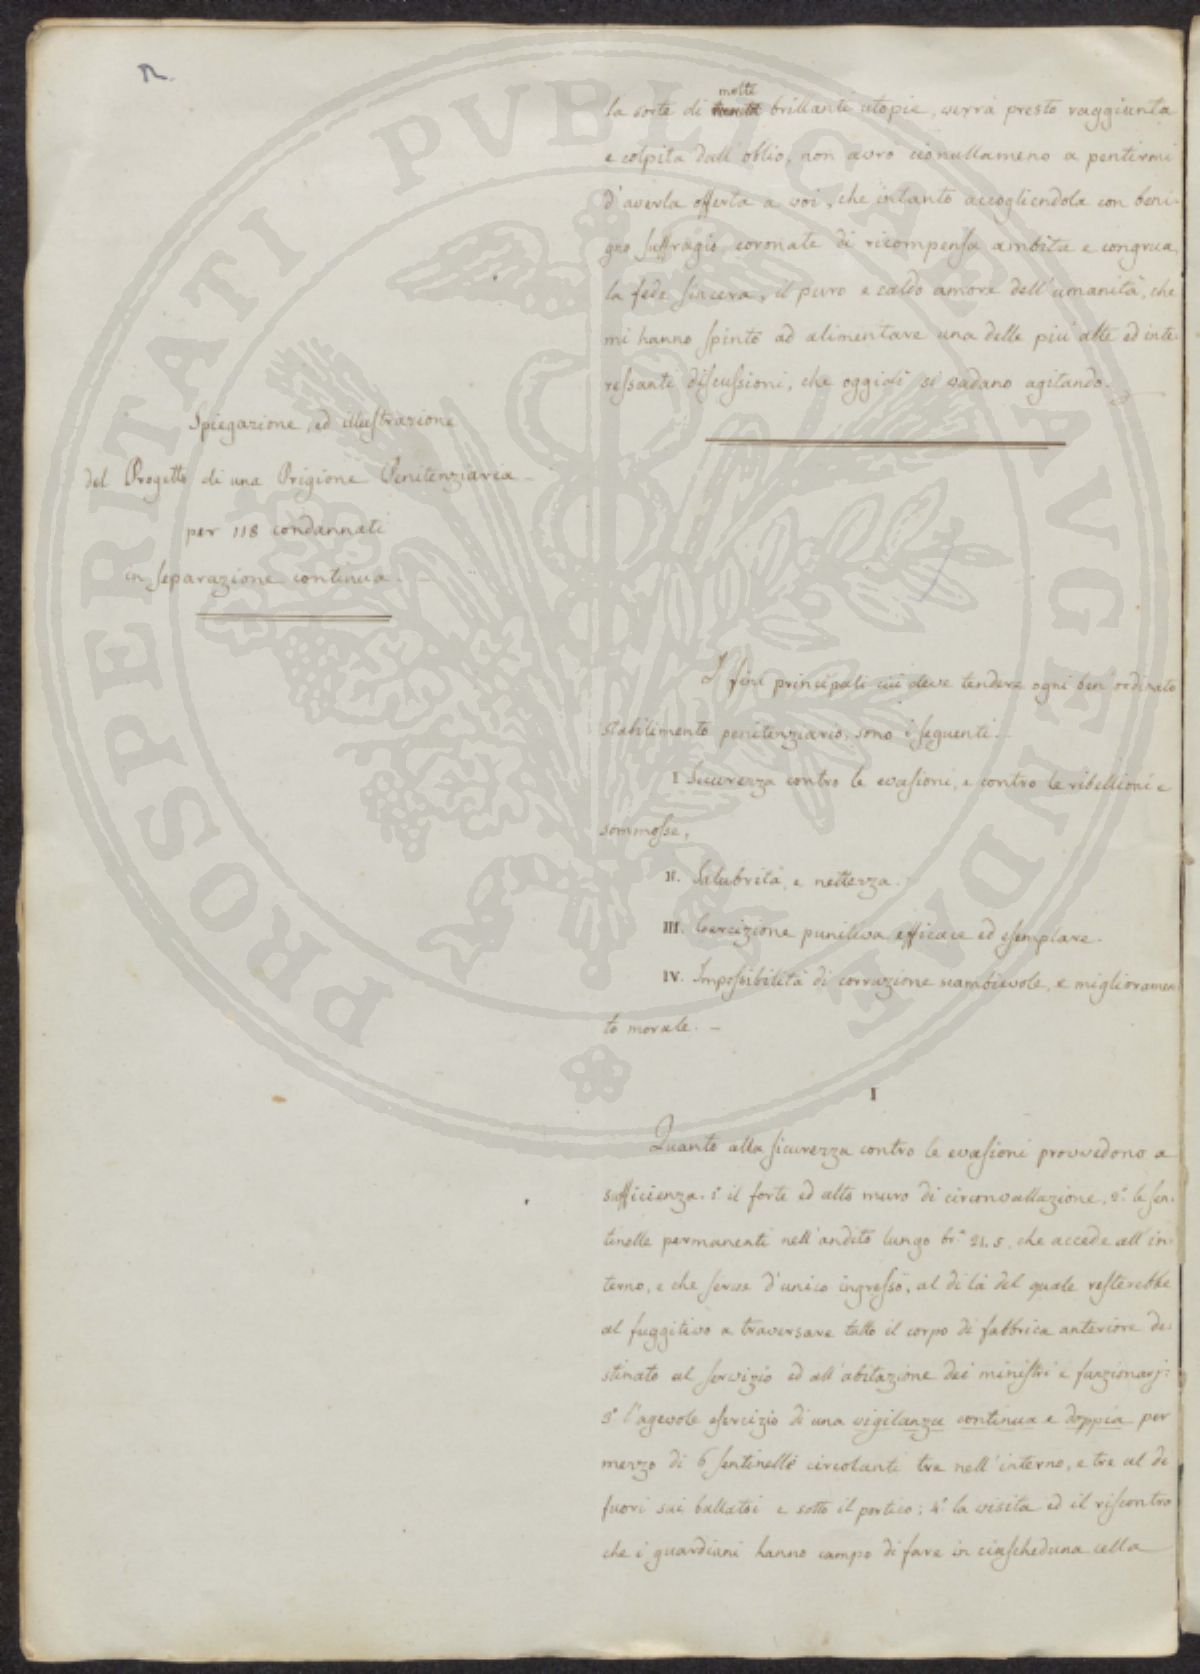 la sorte di molte brillanti utopie, verrà presto raggiunta
e colpita dall'oblio, non avrò ciònullameno a pentirmi
d'averla offerta a voi, che intanto accogliendola con beni-
gno suffragio, coronate di ricompensa ambita e congrua
la fede sincera, il puro e caldo amore dell'umanità, che
mi hanno spinto ad alimentare una delle più alte ed inte-
ressanti discussioni, che oggidì si vadano agitando.
Spiegazione, ed illustrazione
del Progetto di una Prigione Penitenziaria
per 118 condannati
in separazione continua.
I fini principali cui deve tendere ogni ben ordinato
stabilimento penitenziario, sono i seguenti.
I. Sicurezza contro le evasioni, e contro le ribellioni e
sommosse,
II. Salubrità, e nettezza.
III. Coercizione punitiva efficace ed esemplare.
IV. Impossibilità di corruzione scambievole, e miglioramen
to morale. –
I
Quanto alla sicurezza contro le evasioni provvedono a
sufficienza: 1° il forte ed alto muro di circonvallazione, 2° le sen-
tinelle permanenti nell'andito lungo br.ª 21.5, che accede all'in-
terno, e che serve d'unico ingresso, al di là del quale resterebbe
al fuggitivo a traversare tutto il corpo di fabbrica anteriore de-
stinato al servizio ed all'abitazione dei ministri e funzionarj:
3° l'agevole esercizio di una vigilanza continua e doppia per
mezzo di 6 sentinelle circolanti tre nell'interno, e tre al di
fuori sui ballatoi e sotto il portico; 4° la visita ed il riscontro
che i guardiani hanno campo di fare in ciascheduna cella
PROSPERITATI PVBLICAE AVGENDAE